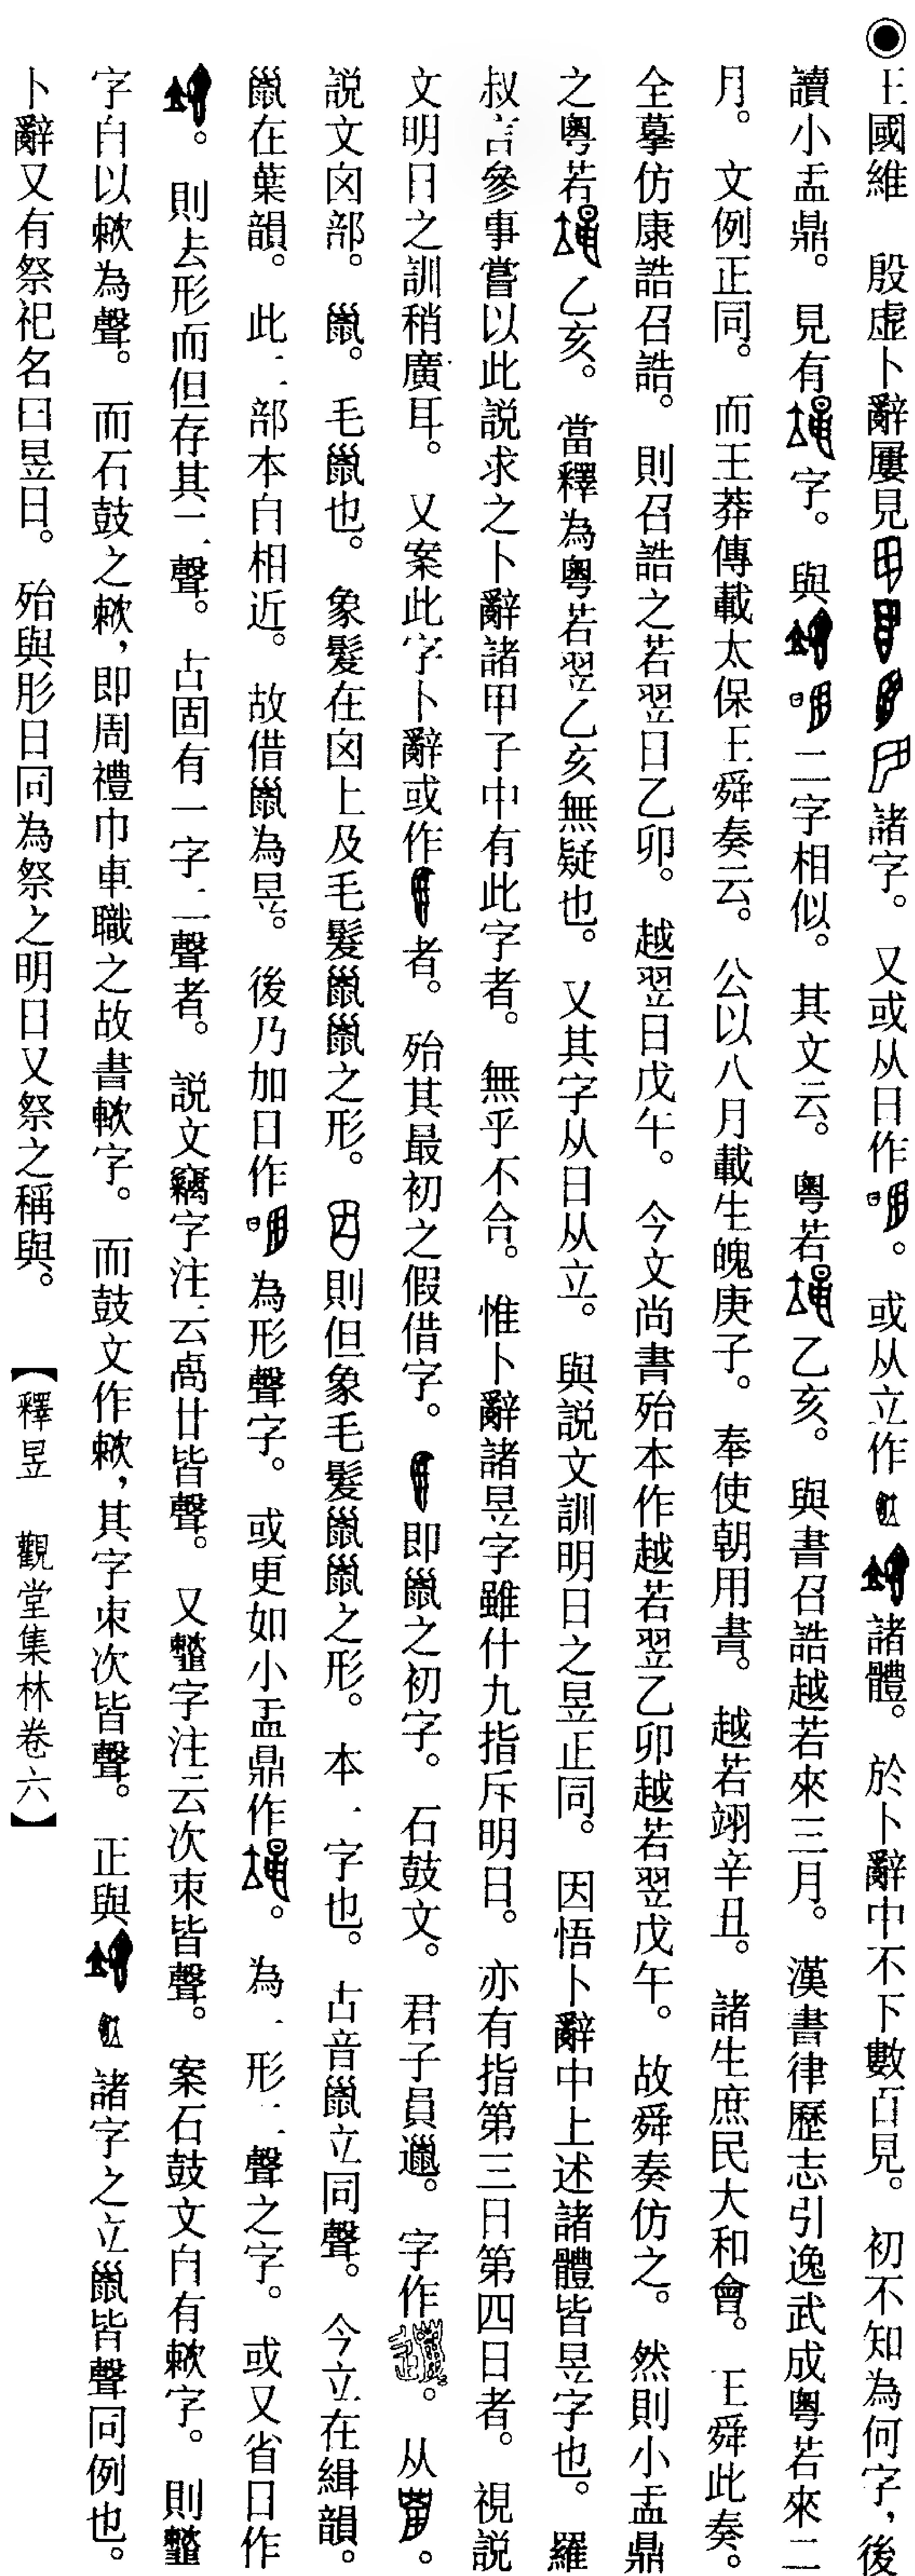 ◉王國維　殷虛卜辭屢見諸字。又或从日作。或从立作諸體。於卜辭中不下數百見。初不知為何字，後
讀小盂鼎。見有字。與二字相似。其文云。粵若乙亥。與書召誥越若來三月。漢書律歷志引逸武成粵若來二
月。文例正同。而王莽傳載太保王舜奏云。公以八月載生魄庚子。奉使朝用書。越若翊辛丑。諸生庶民大和會。王舜此奏。
全摹仿康誥召誥。則召誥之若翌日乙卯。越翌日戊午。今文尚書殆本作越若翌乙卯越若翌戊午。故舜奏仿之。然則小盂鼎
之粵若乙亥。當釋為粵若翌乙亥無疑也。又其字从日从立。與説文訓明日之昱正同。因悟卜辭中上述諸體皆昱字也。羅
叔言參事嘗以此説求之卜辭諸甲子中有此字者。無乎不合。惟卜辭諸昱字雖什九指斥明日。亦有指第三日第四日者。視説
文明日之訓稍廣耳。又案此字卜辭或作者。殆其最初之假借字。即巤之初字。石鼓文。君子員邋。字作。从。
説文囟部。巤。毛巤也。象髮在囟上及毛髮巤巤之形。則但象毛髮巤巤之形。本一字也。古音巤立同聲。今立在緝韻。
巤在葉韻。此二部本自相近。故借巤為昱。後乃加日作為形聲字。或更如小盂鼎作。為一形二聲之字。或又省日作
。則去形而但存其二聲。古固有一字二聲者。説文竊字注云卨廿皆聲。又䪢字注云次朿皆聲。案石鼓文自有字。則䪢
字自以為聲。而石鼓之，即周禮巾車職之故書軟字。而鼓文作，其字朿次皆聲。正與諸字之立巤皆聲同例也。
卜辭又有祭祀名曰昱日。殆與肜日同為祭之明日又祭之稱與。【釋昱　觀堂集林卷六】